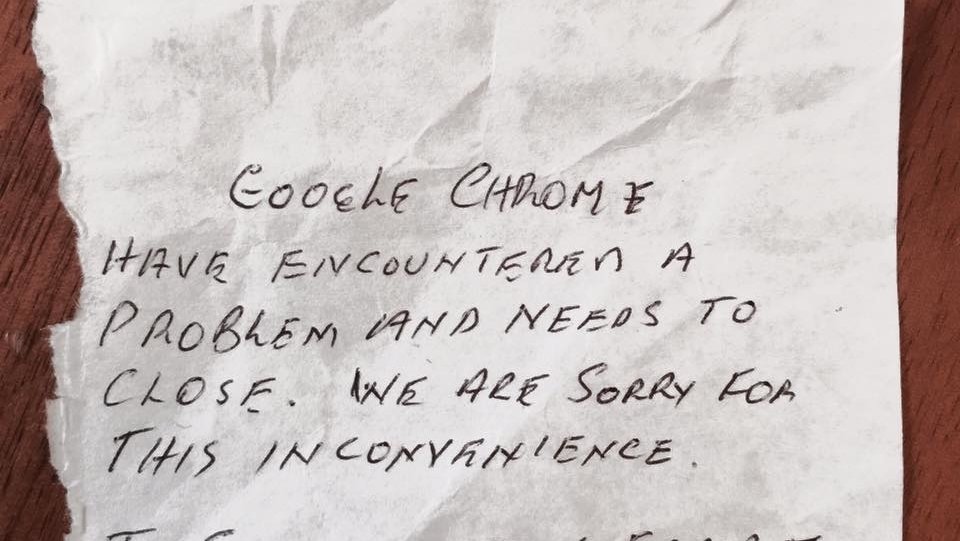 GOOGLE CHROME
HAVE ENCOUNTERED A
PROBLEM AND NEEDS TO
CLOSE. WE ARE SORRY FOR
THIS INCONVENIENCE.